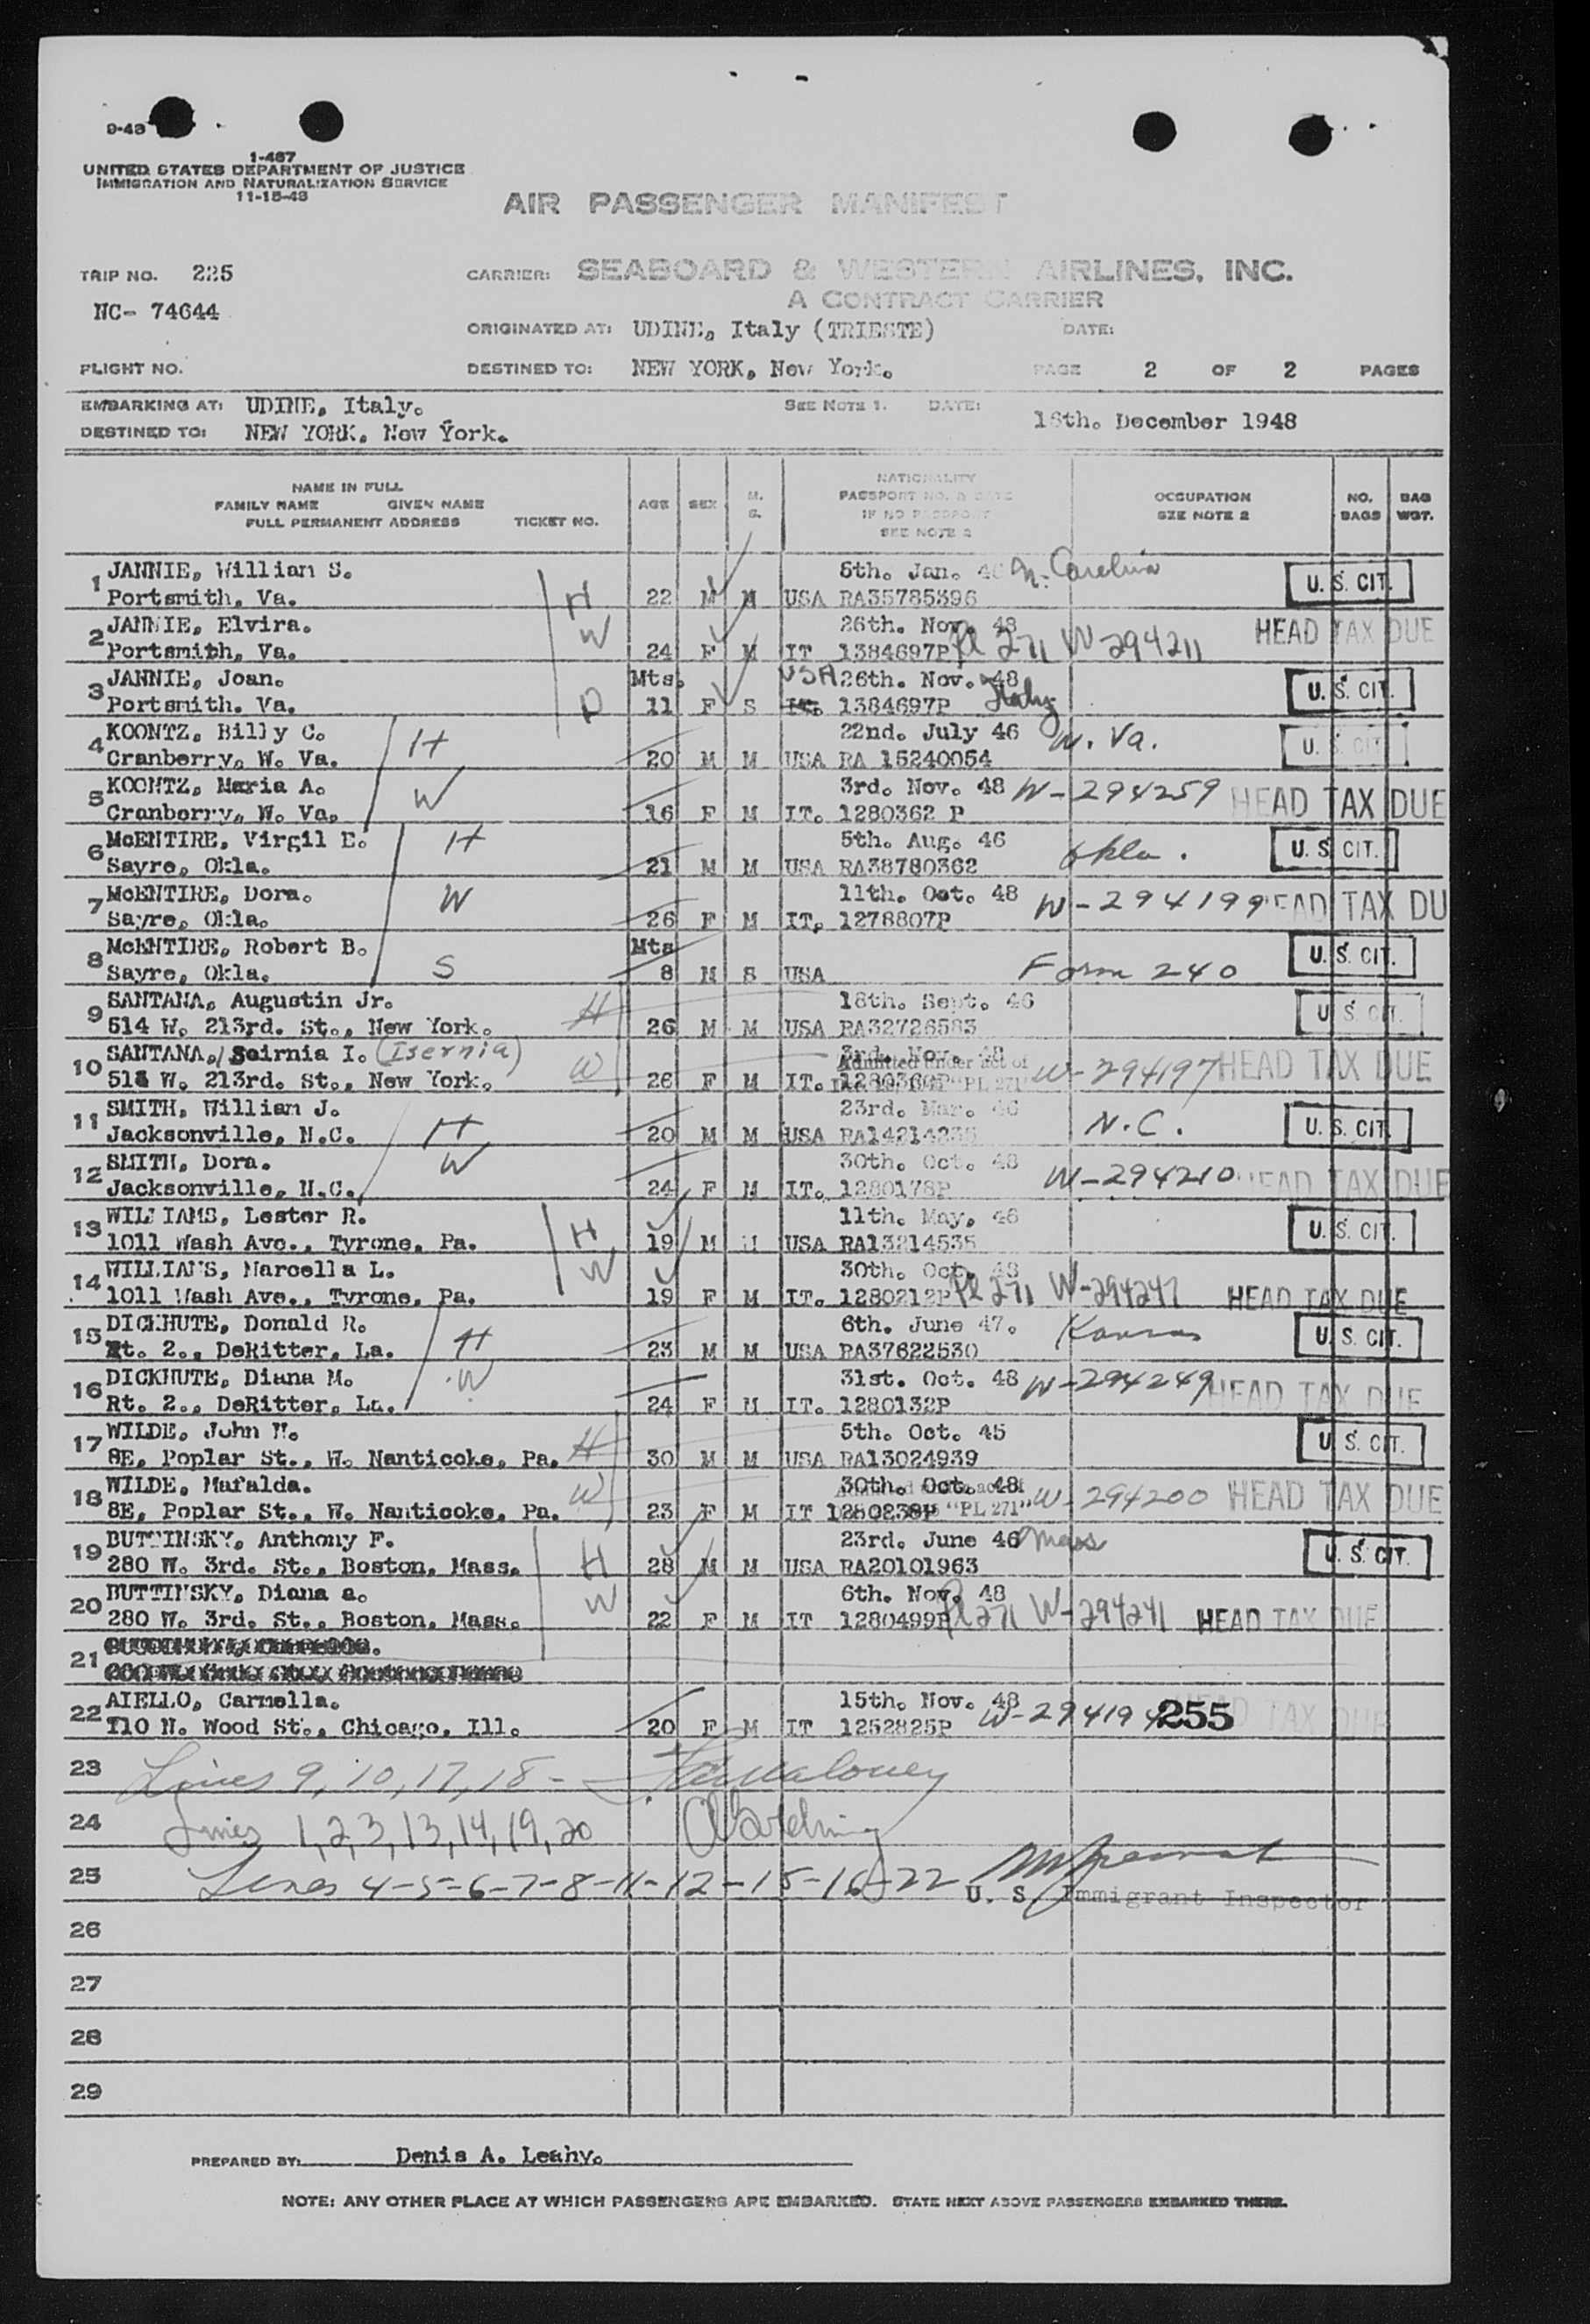 9-43
1-467
UNITED STATES DEPARTMENT OF JUSTICE
IMMIGRATION AND NATURALIZATION SERVICE
11-15-43
AIR PASSENGER MANIFEST
TRIP NO. 225
CARRIER: SEABOARD & WESTERN AIRLINES, INC.
A CONTRACT CARRIER
NC- 74644
ORIGINATED AT: UDINE, Italy (TRIESTE) DATE:
FLIGHT NO. DESTINED TO: NEW YORK, New York. PAGE 2 OF 2 PAGES
EMBARKING AT: UDINE, Italy. SEE NOTE 1. DATE: 16th. December 1948
DESTINED TO: NEW YORK, New York.
NAME IN FULL
FAMILY NAME GIVEN NAME
FULL PERMANENT ADDRESS TICKET NO.
AGE SEX M. S.
NATIONALITY
PASSPORT NO. & DATE
IF NO PASSPORT
SEE NOTE 2
OCCUPATION
SEE NOTE 2
NO. BAGS
BAG WGT.
1 JANNIE, William S. 5th. Jan. 46 N. Carolina U. S. CIT.
Portsmith, Va. H 22 M M USA RA35785396
2 JANNIE, Elvira. W 26th. Nov. 48 HEAD TAX DUE
Portsmith, Va. 24 F M IT 1384697P Pl 271 W-294211
3 JANNIE, Joan. Mts. USA 26th. Nov. 48 U. S. CIT.
Portsmith. Va. D 11 F S 1384697P Italy
4 KOONTZ, Billy C. H 22nd. July 46 W. Va. U. S. CIT.
Cranberry, W. Va. 20 M M USA RA 15240054
5 KOONTZ, Maria A. W 3rd. Nov. 48 W-294259 HEAD TAX DUE
Cranberry, W. Va. 16 F M IT. 1280362 P
6 McENTIRE, Virgil E. H 5th. Aug. 46 Okla. U. S. CIT.
Sayre, Okla. 21 M M USA RA38780362
7 McENTIRE, Dora. W 11th. Oct. 48 W-294199 HEAD TAX DU
Sayre, Okla. 26 F M IT. 1278807P
8 McENTIRE, Robert B. Mts U. S. CIT.
Sayre, Okla. S 8 M S USA Form 240
9 SANTANA, Augustin Jr. H 18th. Sept. 46 U. S. CIT.
514 W. 213rd. St., New York. 26 M M USA RA32726583
10 SANTANA, Seirnia I. (Isernia) 3rd. Nov. 48 HEAD TAX DUE
Admitted under act of
514 W. 213rd. St., New York. W 26 F M IT. 1280360P "PL 271" W-294197
11 SMITH, William J. 23rd. Mar. 46 N.C. U. S. CIT.
Jacksonville, N.C. H 20 M M USA RA14214235
12 SMITH, Dora. W 30th. Oct. 48 W-294210 HEAD TAX DUE
Jacksonville, N.C. 24 F M IT. 1280178P
13 WILLIAMS, Lester R. H 11th. May. 46 U. S. CIT.
1011 Wash Ave., Tyrone, Pa. 19 M M USA RA13214535
14 WILLIAMS, Marcella L. W 30th. Oct. 48
1011 Wash Ave., Tyrone, Pa. 19 F M IT. 1280212P Pl 271 W-294247 HEAD TAX DUE
15 DICKHUTE, Donald R. H 6th. June 47. Kansas U. S. CIT.
Rt. 2., DeRitter, La. 23 M M USA RA37622530
16 DICKHUTE, Diana M. W 31st. Oct. 48 W-294249 HEAD TAX DUE
Rt. 2., DeRitter, La. 24 F M IT. 1280132P
17 WILDE, John W. H 5th. Oct. 45 U. S. CIT.
8E, Poplar St., W. Nanticoke, Pa. 30 M M USA RA13024939
18 WILDE, Mafalda. W 30th. Oct. 48 W-294200 HEAD TAX DUE
8E, Poplar St., W. Nanticoke, Pa. 23 F M IT 1280238P "PL 271"
19 BUTTINSKY, Anthony F. H 23rd. June 46 Mass U. S. CIT.
280 W. 3rd. St., Boston, Mass. 28 M M USA RA20101963
20 BUTTINSKY, Diana a. W 6th. Nov. 48
280 W. 3rd. St., Boston, Mass. 22 F M IT 1280499P Pl 271 W-294241 HEAD TAX DUE
21
22 AIELLO, Carmella. 15th. Nov. 48 W-294194 255 HEAD TAX DUE
110 N. Wood St., Chicago, Ill. 20 F M IT 1252825P
23 Lines 9, 10, 17, 18 -
24 Lines 1, 2, 3, 13, 14, 19, 20
25 Lines 4-5-6-7-8-11-12-15-16-22
U. S. Immigrant Inspector
26
27
28
29
PREPARED BY: Denis A. Leahy.
NOTE: ANY OTHER PLACE AT WHICH PASSENGERS ARE EMBARKED. STATE NEXT ABOVE PASSENGERS EMBARKED THERE.